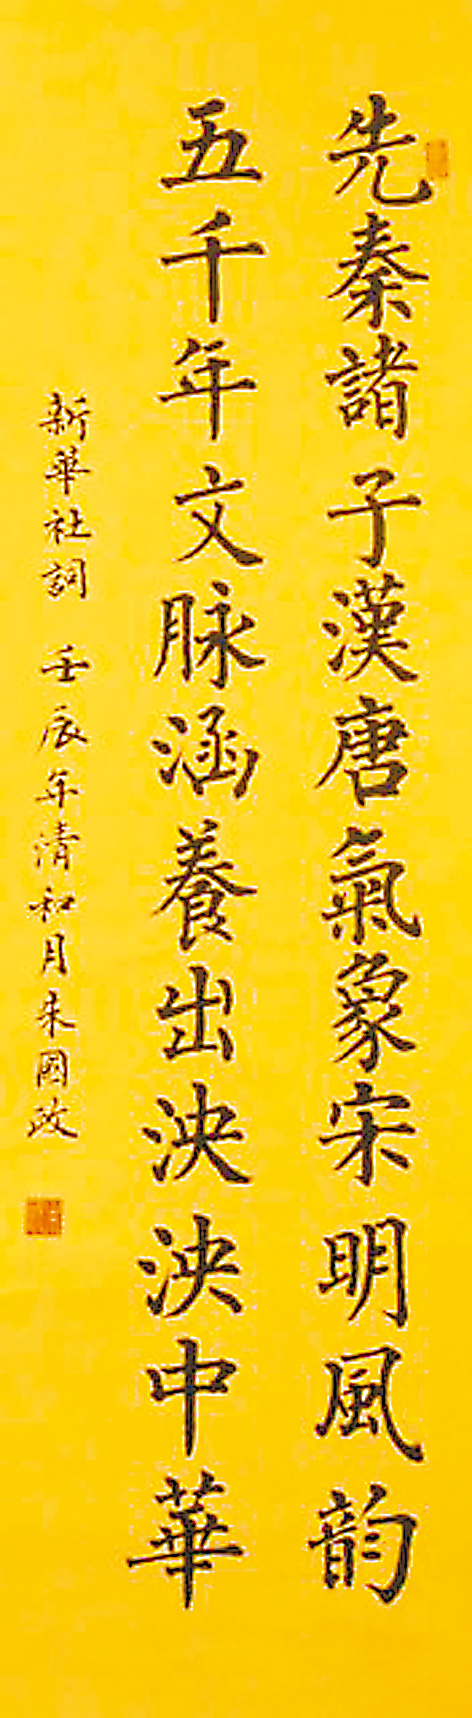 先秦諸子漢唐氣象宋明風韵
五千年文脉涵養出泱泱中華
新華社詞 壬辰年清和月朱國政